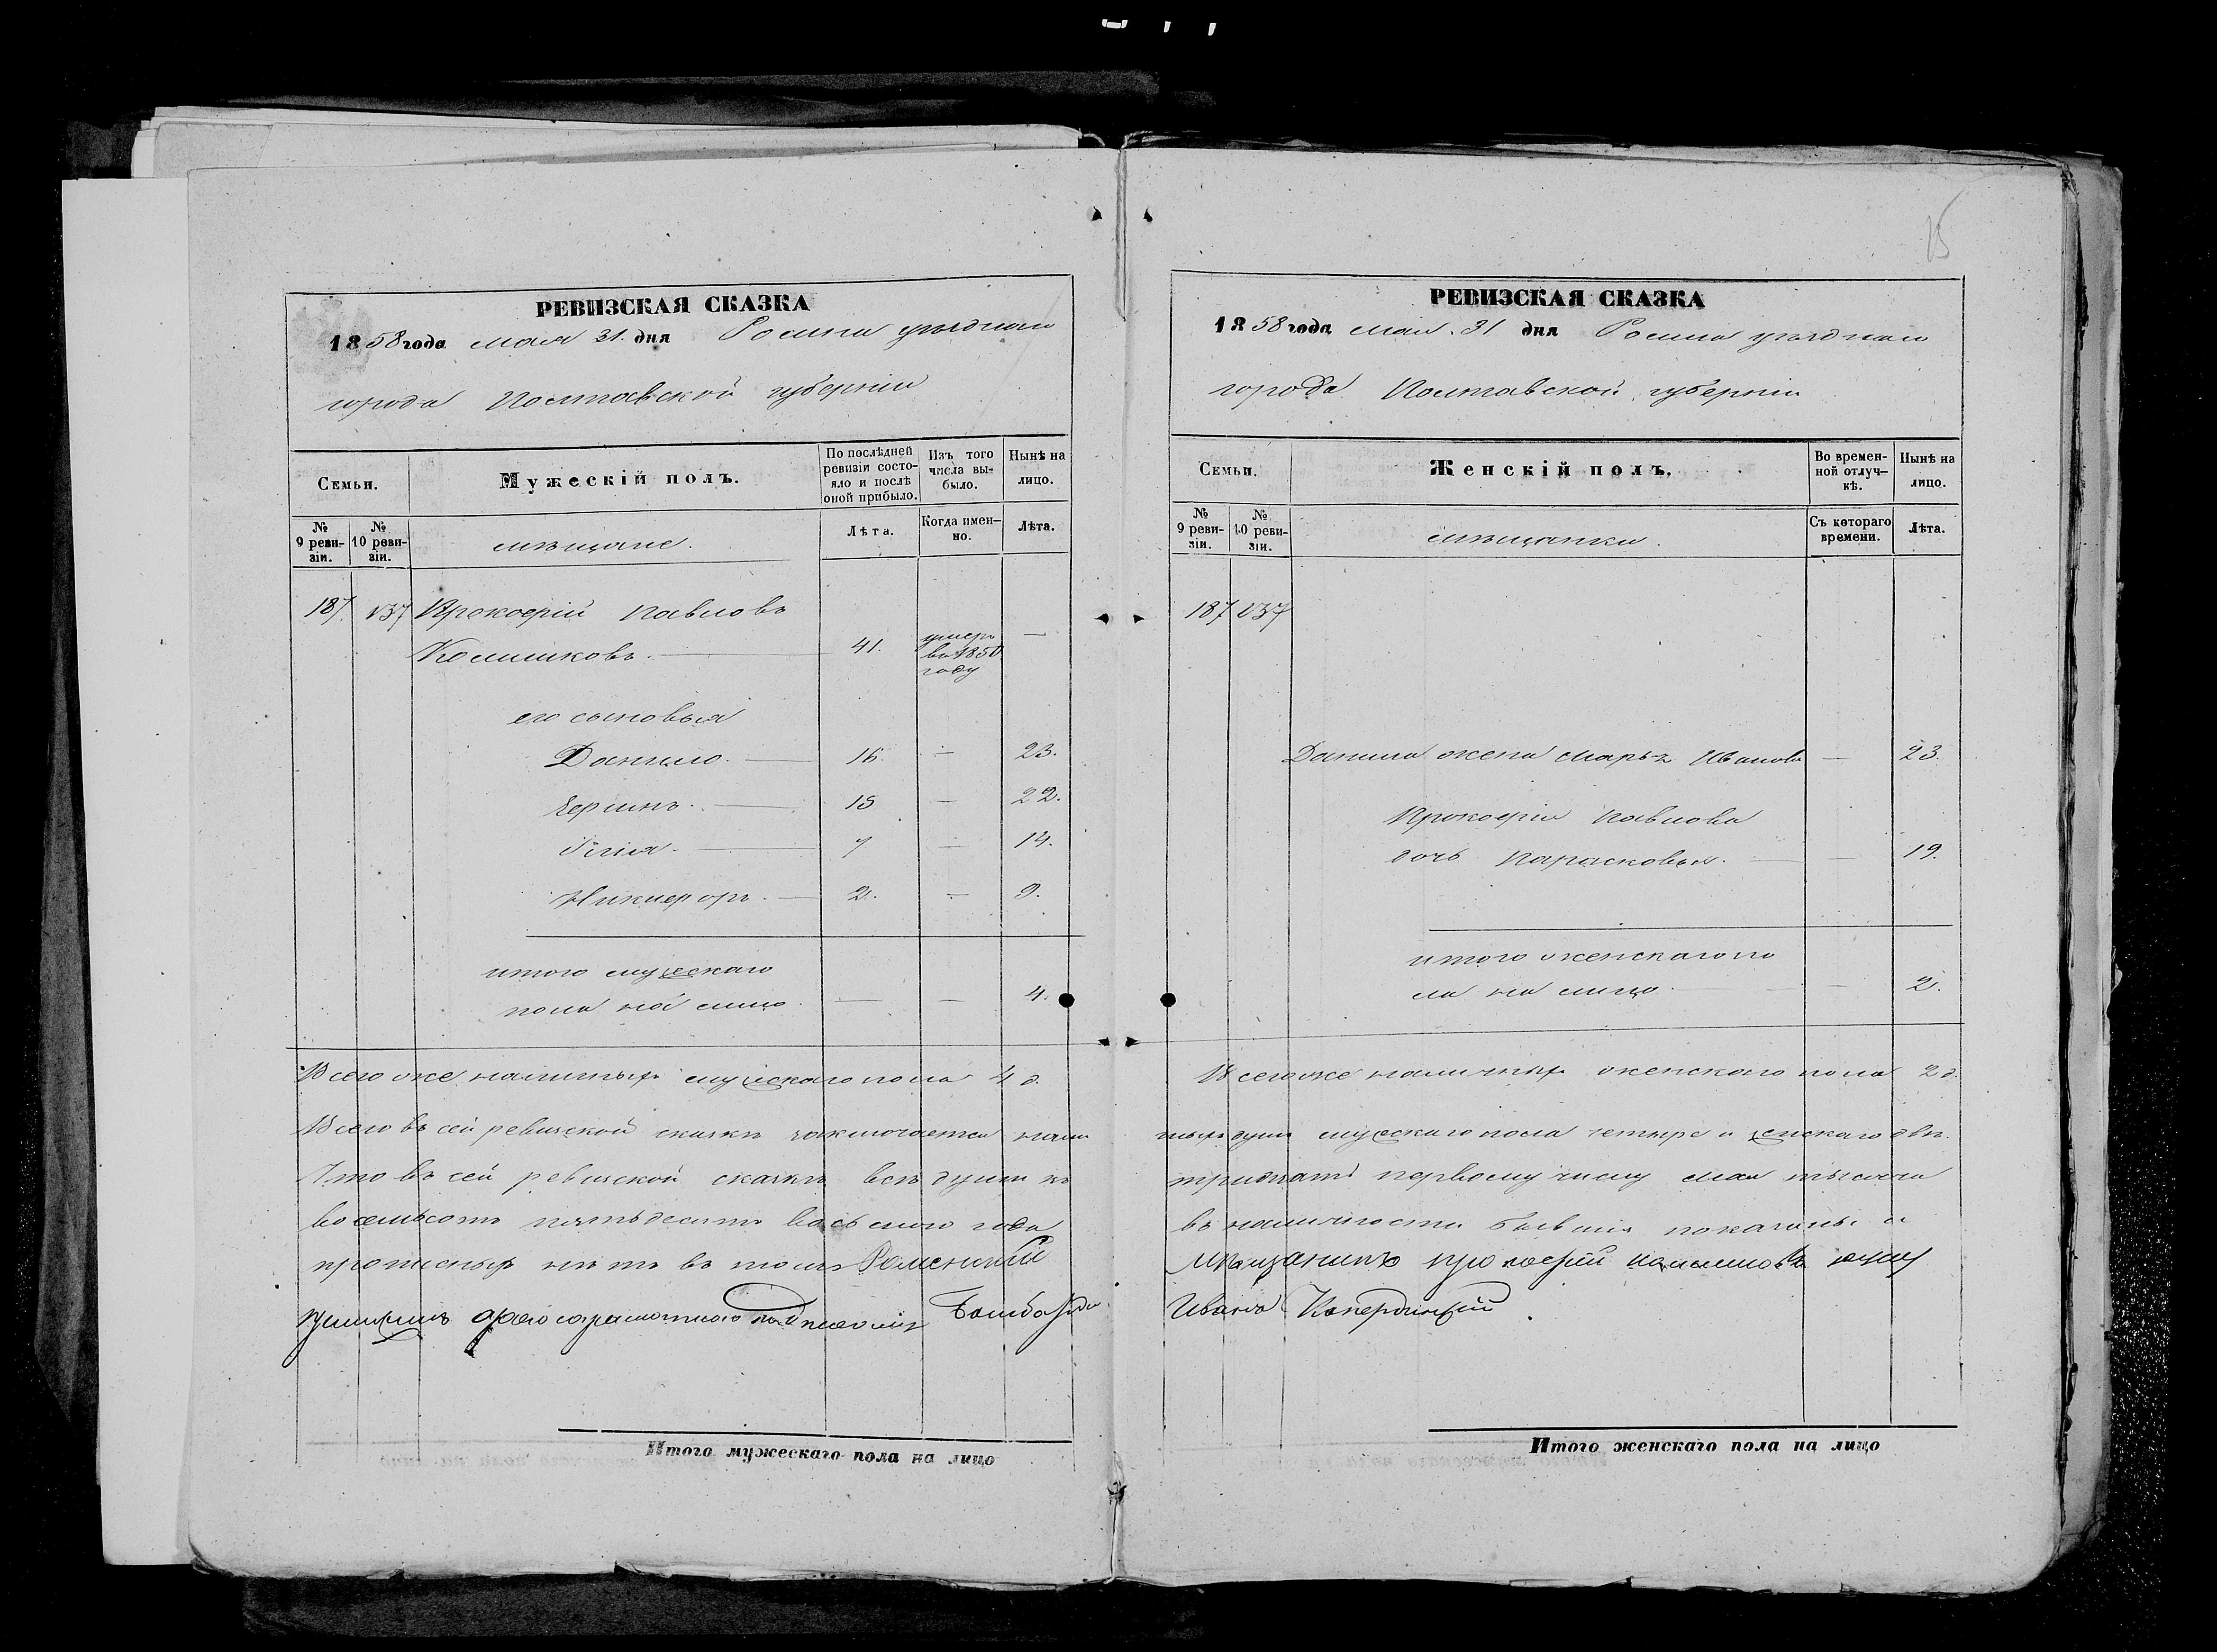 РЕВИЗСКАЯ СКАЗКА
1858 года мая 31. дня Ромна уезднаго
города Полтавской губерніи
Семьи.
Мужескій полъ.
По послѣдней ревизіи состояло и послѣ оной прибыло.
Изъ того числа выбыло.
Нынѣ на лицо.
№ 9 ревизіи.
№ 10 ревизіи.
мѣщане.
Лѣта.
Когда именно.
Лѣта.
187. 137 Прокофій Павловъ
Колишковъ. — 41. умеръ въ 1850 году —
его сыновья
Данило. — 16. — 23.
— 15 — 22.
Илія. — 7 — 14.
Никифоръ. — 2. — 9.
итого мужескаго
пола на лицо. — — 4.
Всего же наличныхъ мужескаго пола 4 д.
Всего въ сей ревизской сказкѣ заключается налич
Что въ сей ревизской сказкѣ всѣ души къ
восемьсотъ пятьдесятъ восьмого года
прописныхъ нѣтъ въ томъ Роменскій
Итого мужескаго пола на лицо
15
РЕВИЗСКАЯ СКАЗКА
1858 года мая. 31 дня Ромна уезднаго
города Полтавской губерніи
Семьи.
Женскій полъ.
Во временной отлучкѣ.
Нынѣ на лицо.
№ 9 ревизіи.
№ 10 ревизіи.
мѣщанки.
Съ котораго времени.
Лѣта.
187 137
Данила жена Марья Иванова — 23.
Прокофія Павлова
дочь Парасковья. — — 19.
итого женскаго по
ла на лицо. — — 2.
Всего же наличныхъ женскаго пола 2 д.
ныхъ душъ мужескаго пола четыре и женскаго двѣ.
тридцать первому числу мая тысяча
въ наличности бывшія показаны и
Мѣщанинъ Прокофій
Иванъ
Итого женскаго пола на лицо